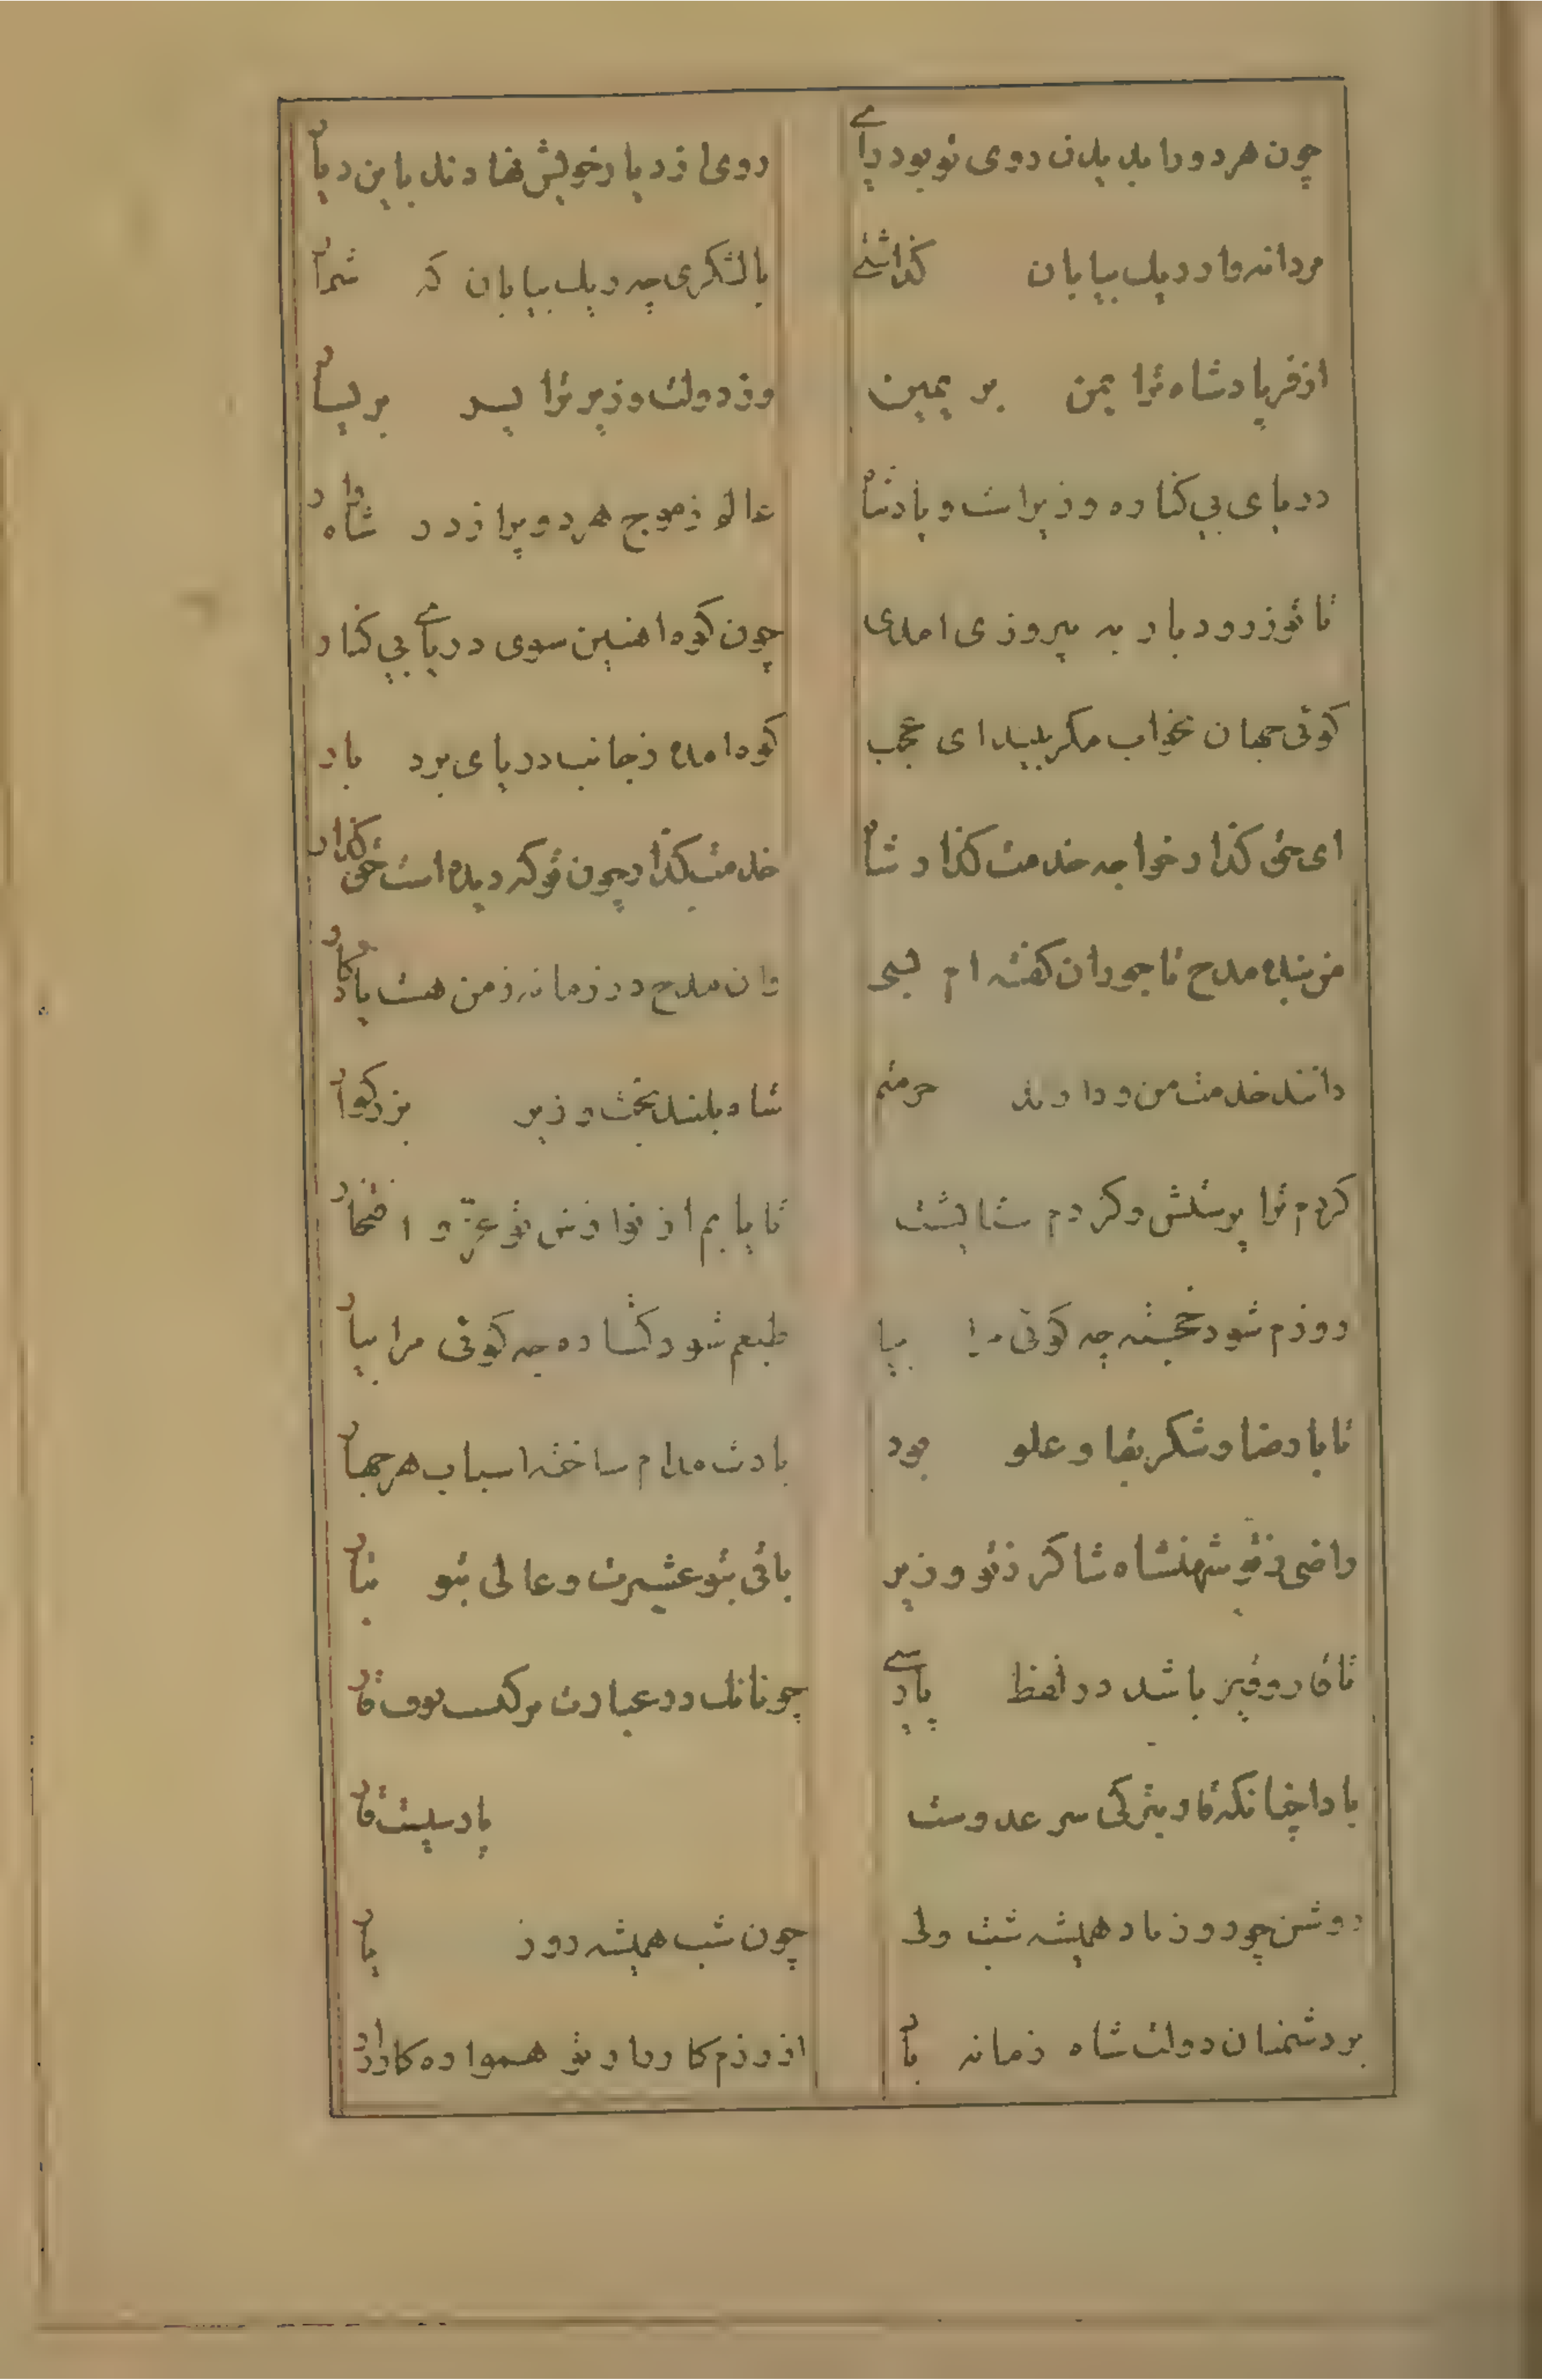 چون هر دو را بدیدن روی تو بود رای روی از دیار خویش نهادند باین دیار
مردانه وار در یک بیابان گذاشتی با لشکری چه ریک بیابان که شمار
از فر پادشاه ترا یمن بر یمین وز دولت وزیر ترا یسر بر یسار
دریای بی کناره وزیر است و پادشاه عالم ز موج هر دو پر از در شاهوار
تا تو ز رودبار به پیروزی امدی چون کوه اهنین سوی دریای بی کنار
کوئی جهان بخواب مکر بیند ای عجب کوه امده ز جانب دریای برد بار
ای حق کذار خواجه خدمت کذار شاه خدمت کذار چون تو که دیده است حق کذار
من بنده مدح تاجوران کفته ام بسی وان مدح در زمانه ز من هست یادکار
دانند خدمت من و دارند حرمتم شاه بلند بخت و وزیر بزرکوار
کردم ترا پرستش و کردم ستایشت تا یابم از نوازش تو عز و افتخار
روزم شود خجسته چه کوئی مرا بیا طبعم شود کشاده چه کوئی مرا بیار
تا با رضا و شکر بقا و علو بود بادت مدام ساخته اسباب هر چهار
راضی ز تو شهنشاه شاکر ز تو وزیر باقی بتو عشیرت و عالی بتو تبار
تا فار و قیر باشد در لفظ پارسی چونانک در عبارت ترکیست قار
بادا چنانکه قار بترکی سر عدوست پارسیست قار
روشن چو روز باد همیشه شبت ولی چون شب همیشه روز
بر دشمنان دولت شاه زمانه باد از رزم کار زار تو همواره کارزار